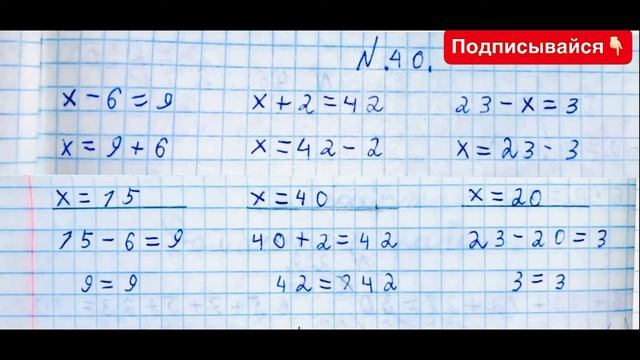 Подписывайся👇
N.40.
x - 6 = 9 x + 2 = 42 23 - x = 3
x = 9 + 6 x = 42 - 2 x = 23 - 3
x = 15 x = 40 x = 20
15 - 6 = 9 40 + 2 = 42 23 - 20 = 3
9 = 9 42 = 42 3 = 3